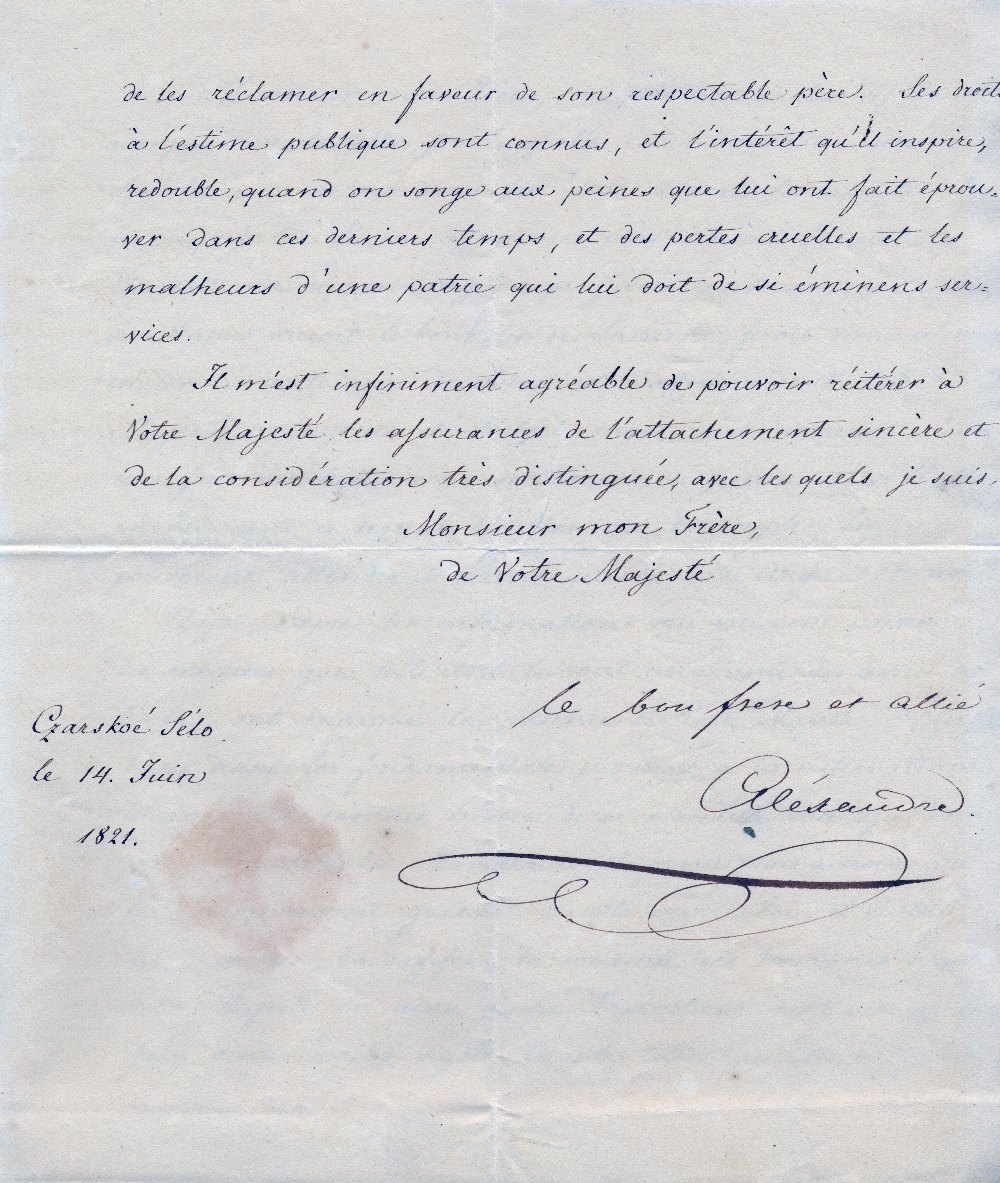 de les réclamer en faveur de son respectable père. Ses droits
à l'estime publique sont connus, et l'intérêt qu'il inspire,
redouble, quand on songe aux peines que lui ont fait éprou-
ver dans ces derniers temps, et des pertes cruelles et les
malheurs d'une patrie qui lui doit de si éminens ser-
vices.
Il m'est infiniment agréable de pouvoir réitérer à
Votre Majesté les assurances de l'attachement sincère et
de la considération très distinguée, avec les quels je suis
Monsieur mon Frère,
de Votre Majesté
le bon frere et allié
Czarskoé Sélo
le 14. Juin
Aléxandre.
1821.